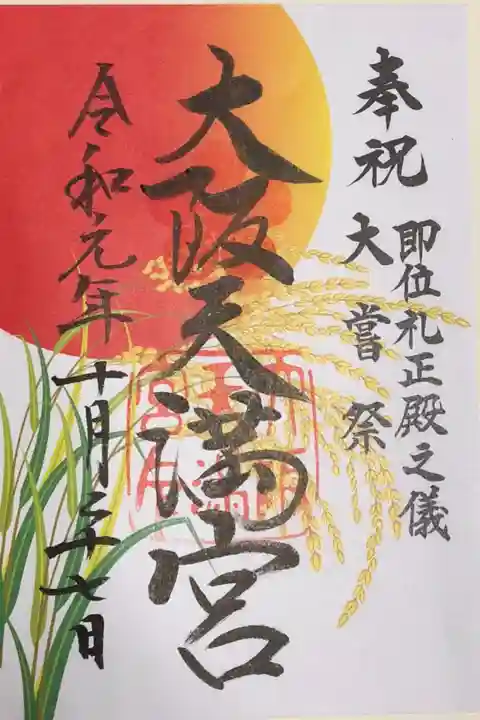 奉祝
即位礼正殿之儀
大嘗祭
大阪天満宮
令和元年
十月二十七日